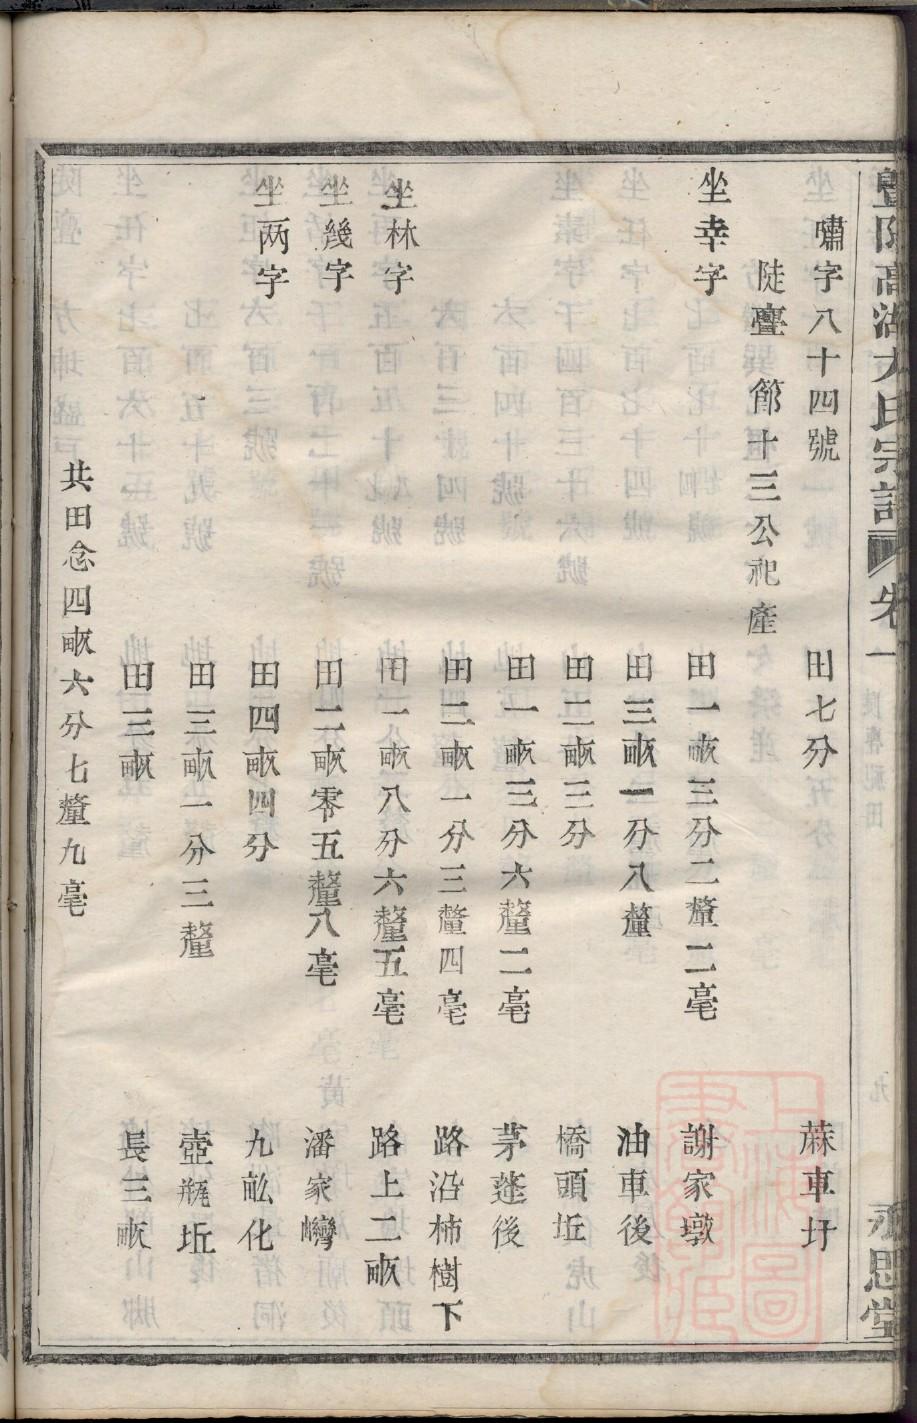 暨陽高湖方氏宗譜 卷一 良塵祀田 九 永思堂
嘯字八十四號 田七分 蔴車圩
陡亹節十三公祀產
坐幸字 田一畝三分二釐二毫 謝家墩
田三畝一分八釐 油車後
田二畝三分 橋頭坵
田一畝三分六釐二毫 茅蓬後
田二畝一分三釐四毫 路沿柿樹下
坐林字 田二畝八分六釐五毫 路上二畝
坐幾字 田二畝零五釐八毫 潘家巒
坐两字 田四畝四分 九畝化
田三畝一分三釐 壺瓶坵
田三畝 長三畝
共田念四畝六分七釐九毫
上海圖書館藏